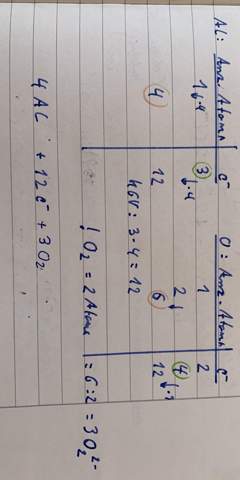 AL: Anz. Atome e⁻ O: Anz. Atome e⁻
1 3 1 2
↓·4 ↓·4 2↓ 4
4 12 6 12
kgV: 3·4 = 12
! O₂ = 2 Atome = 6:2 = 3 O₂²⁻
4 AL + 12 e⁻ + 3 O₂